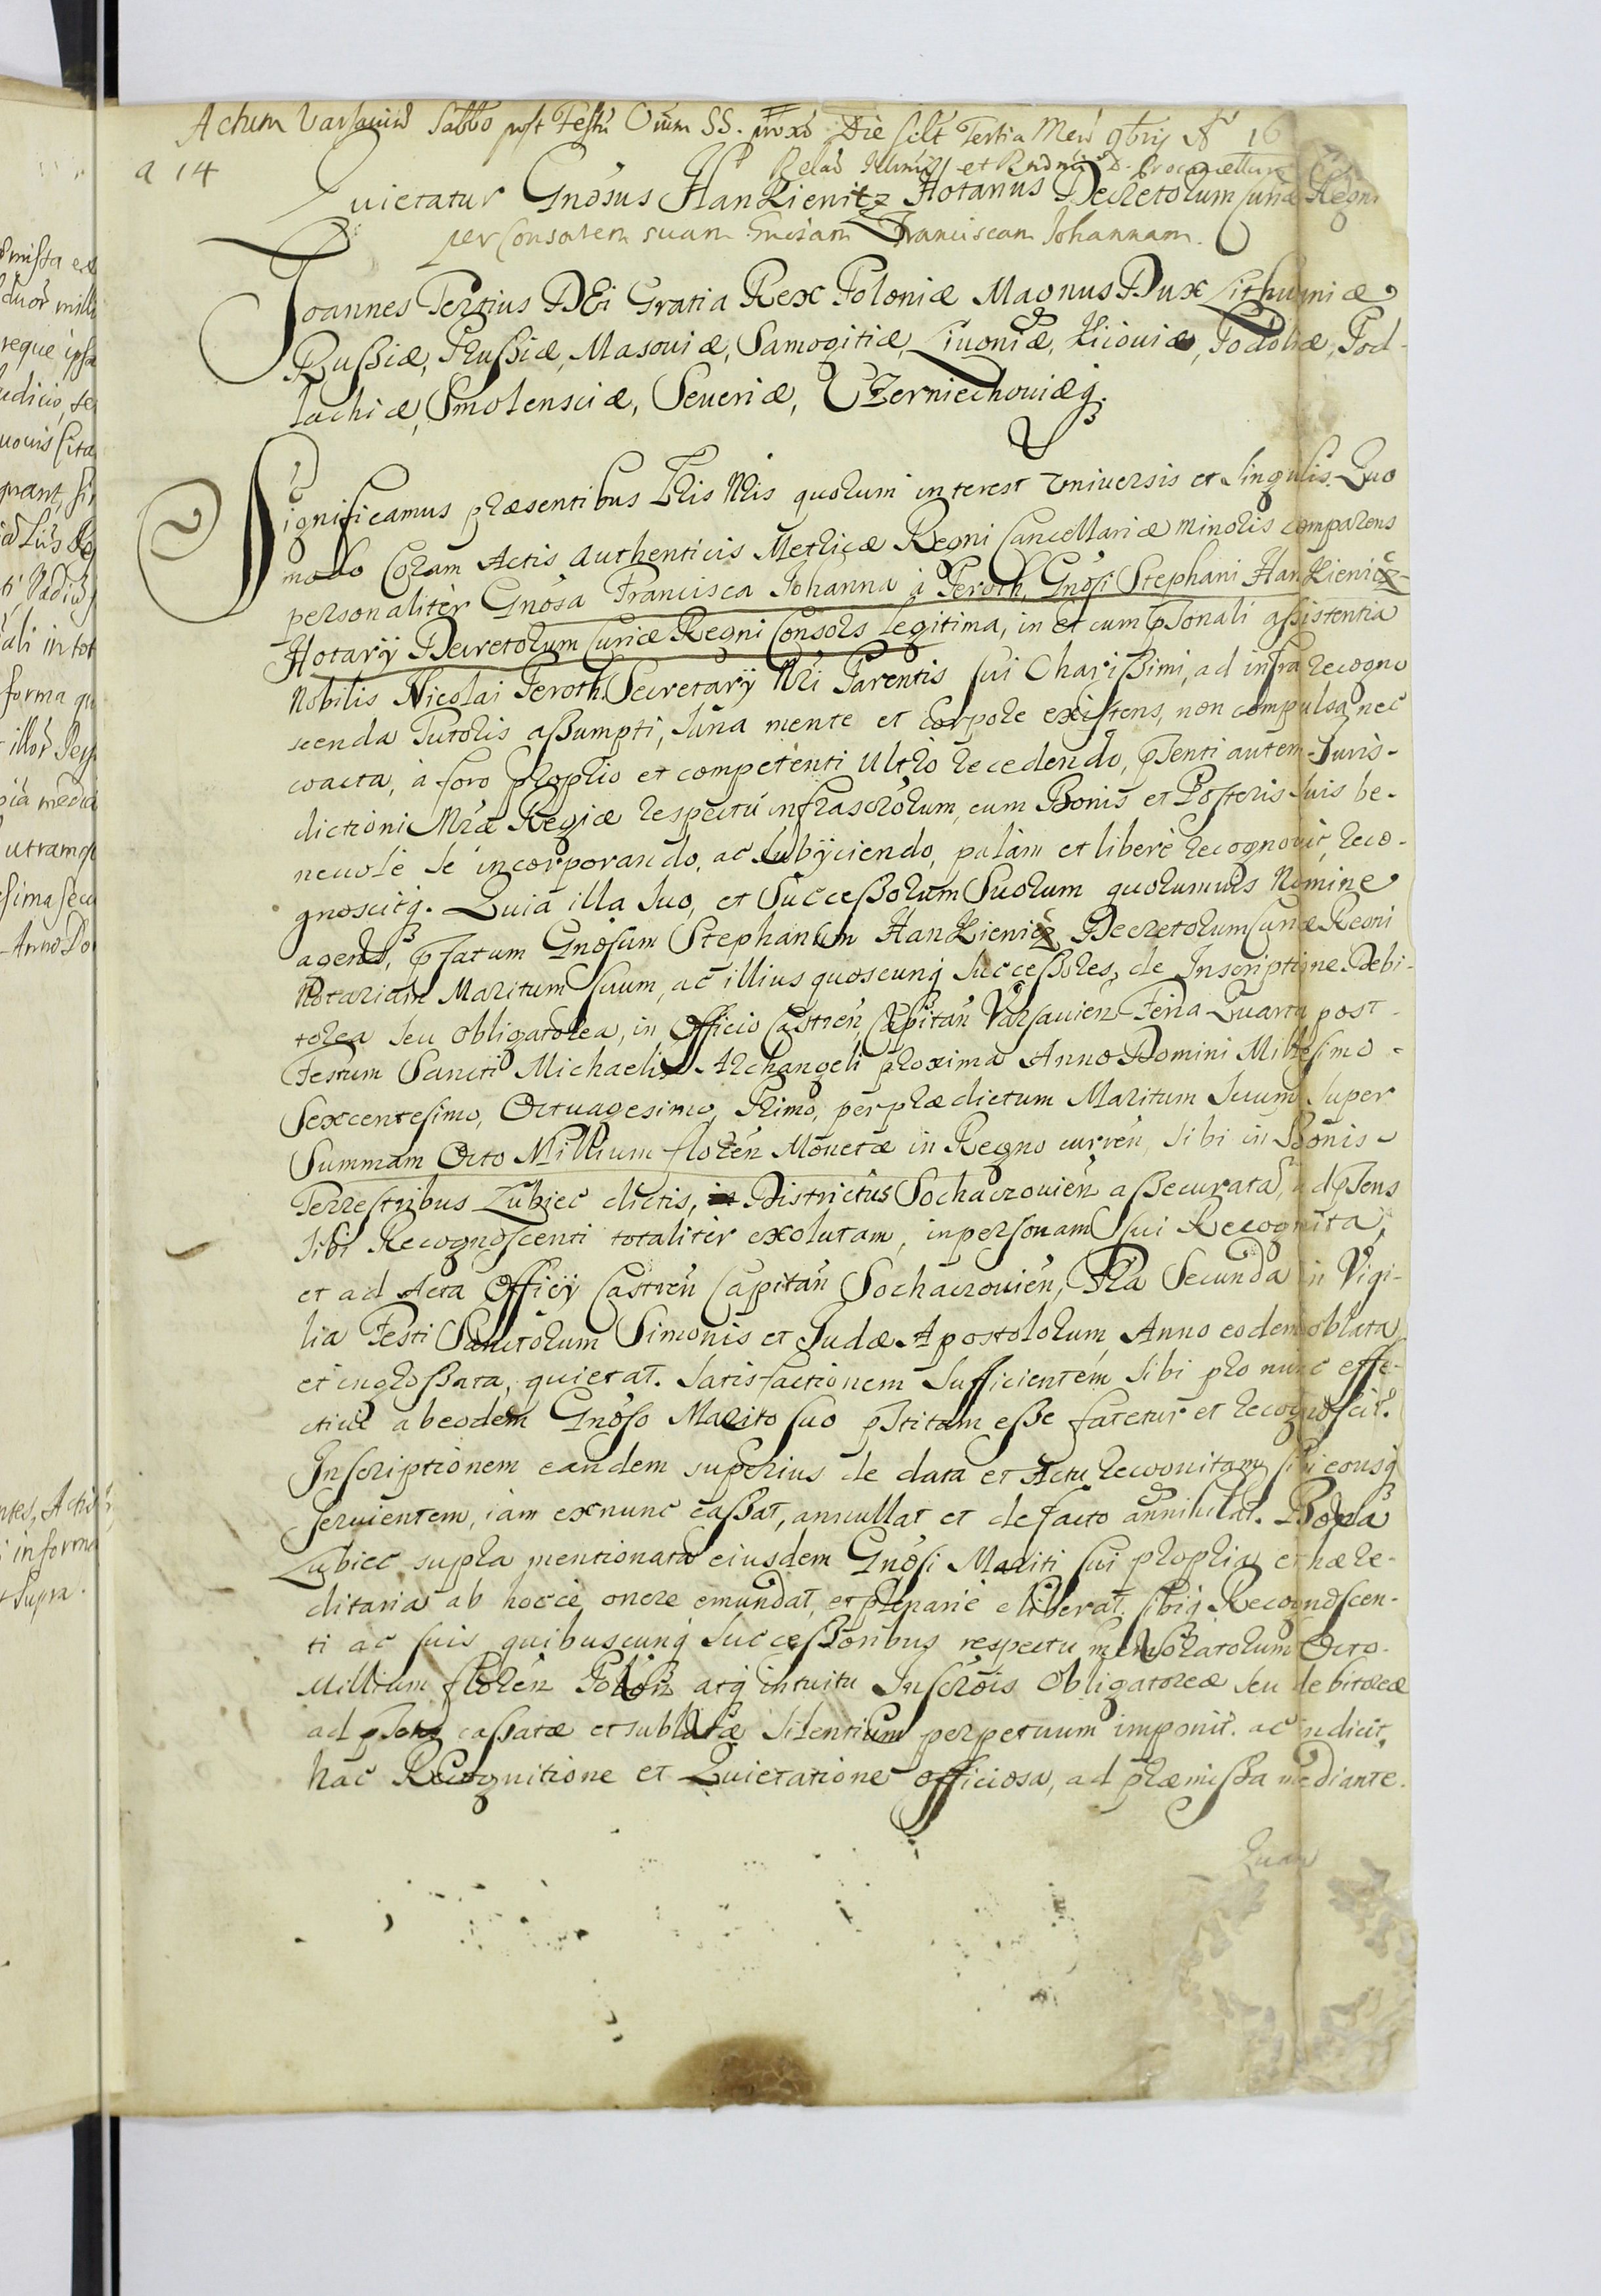 Actum Varsaviæ Sabbo post Festũ Oium SS. proxo Die scilt Tertia Mens 9bris Ao 16
a 14
Relaõ Illmi et Rndmi D. Procancellarii
Quietatur Gnosus Hankienicz Notarius Decretorum Curiæ Regni
per Consortem suam Gnosam Franciscam Johannam.
Joannes Tertius DEi Gratia Rex Poloniæ Magnus Dux Lithuaniæ
Russiæ, Prussiæ, Masoviæ, Samogitiæ, Livoniæ, Kiioviæ, Podoliæ, Pod-
lachiæ, Smolensciæ, Severiæ, Czerniechoviæq.
Significamus præsentibus Lris Nris quorum interest Vniversis et Singulis. Quo
modo Coram Actis Authenticis Metricæ Regni Cancellariæ minoris comparens
personalitèr Gnosa Francisca Johanna à Peroth, Gnosi Stephani Hankienicz
Notarÿ Decretorum Curiæ Regni Consors Legitima, in et cum psonali assistentia
Nobilis Nicolai Peroth Secretarÿ Nri Parentis sui Charissimi, ad infra recogno
scenda Tutoris assumpti, sana mente et Corpore existens, non compulsa nec
coacta, à foro proprio et competenti Ultro recedendo, psenti autem Juris-
dictioni Nræ Regiæ respectu infrascrorum, cum Bonis et Posteris suis be-
nevolè se incorporando, ac subÿciendo, palàm et liberè recognovit, reco-
gnoscitq. Quia illa suo, et Successorum Suorum quorumvis Nomine
agens, pfatum Gnosum Stephanum Hankienicz Decretorum Curiæ Regni
Notarium Maritum suum, ac illius quoscunq Successores, de Inscriptione Debi-
torea seu obligatorea, in Officio Castren Capitan Varsavien Feria Quarta post
Festum Sancti Michaelis Archangeli proxima Anno Domini Millesimo
Sexcentesimo, Octuagesimo, Primo, per prædictum Maritum Suum super
Summam Octo Millium floren Monetæ in Regno curren, sibi in Bonis
Terrestribus Zubiec dictis, Districtus Sochaczovien assecurata, ad psens
sibi Recognoscenti totalitèr exolutam, in personam sui Recognita,
et ad Acta Officÿ Castren Capitan Sochaczovien, Fria Secunda in Vigi-
lia Festi Sanctorum Simonis et Judæ Apostolorum, Anno eodem oblata
et ingrossata, quietat. Satisfactionem Sufficientem sibi pro nunc effe-
ctive ab eodem Gnoso Marito suo pstitam esse fatetur et recognoscit.
Inscriptionem eandem superius de data et Actu recognitam sibi eousq
servientem, iam ex nunc cassat, annullat et de facto annihilat. Bona
Zubiec supra mentionata eiusdem Gnosi Mariti sui propria et hære-
ditaria ab hocce onere emundat, et plenarie eliberat. sibiq Recognoscen-
ti ac suis quibuscunq Successoribus respectu memoratorum Octo
Millium floren Polon atq intuitu Inscrois Obligatoreæ seu debitoreæ
ad psens cassatæ et sublatæ Silentium perpetuum imponit. ac indicit,
hac Recognitione et Quietatione officiosa, ad præmissa mediante.
Quam